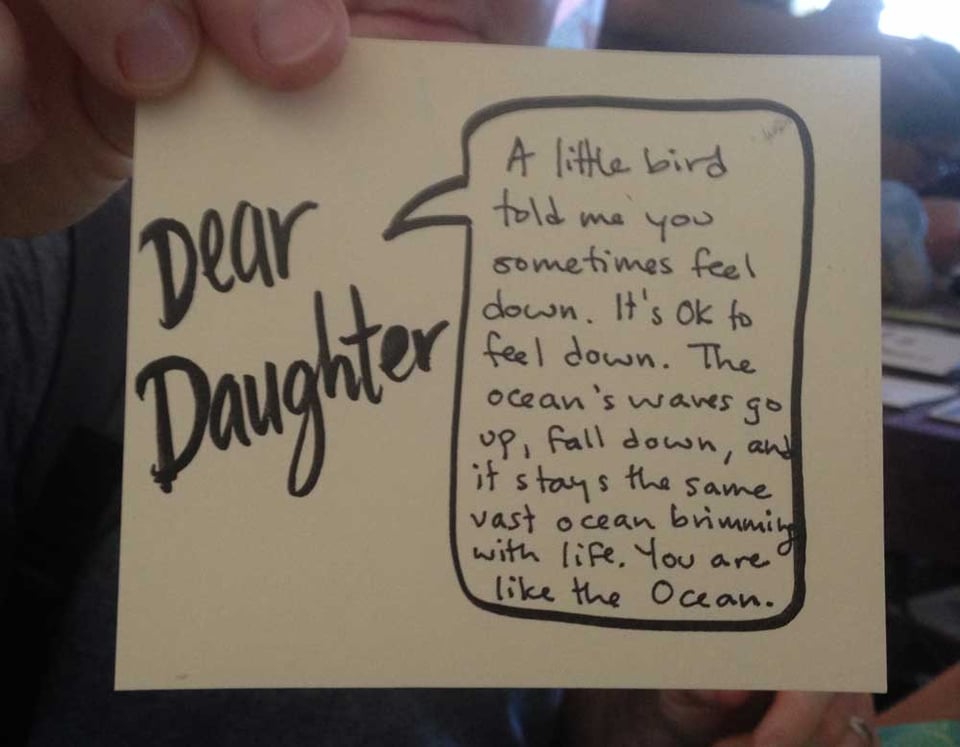 Dear
Daughter
A little bird
told me you
sometimes feel
down. It's OK to
feel down. The
ocean's waves go
up, fall down, and
it stays the same
vast ocean brimming
with life. You are
like the Ocean.